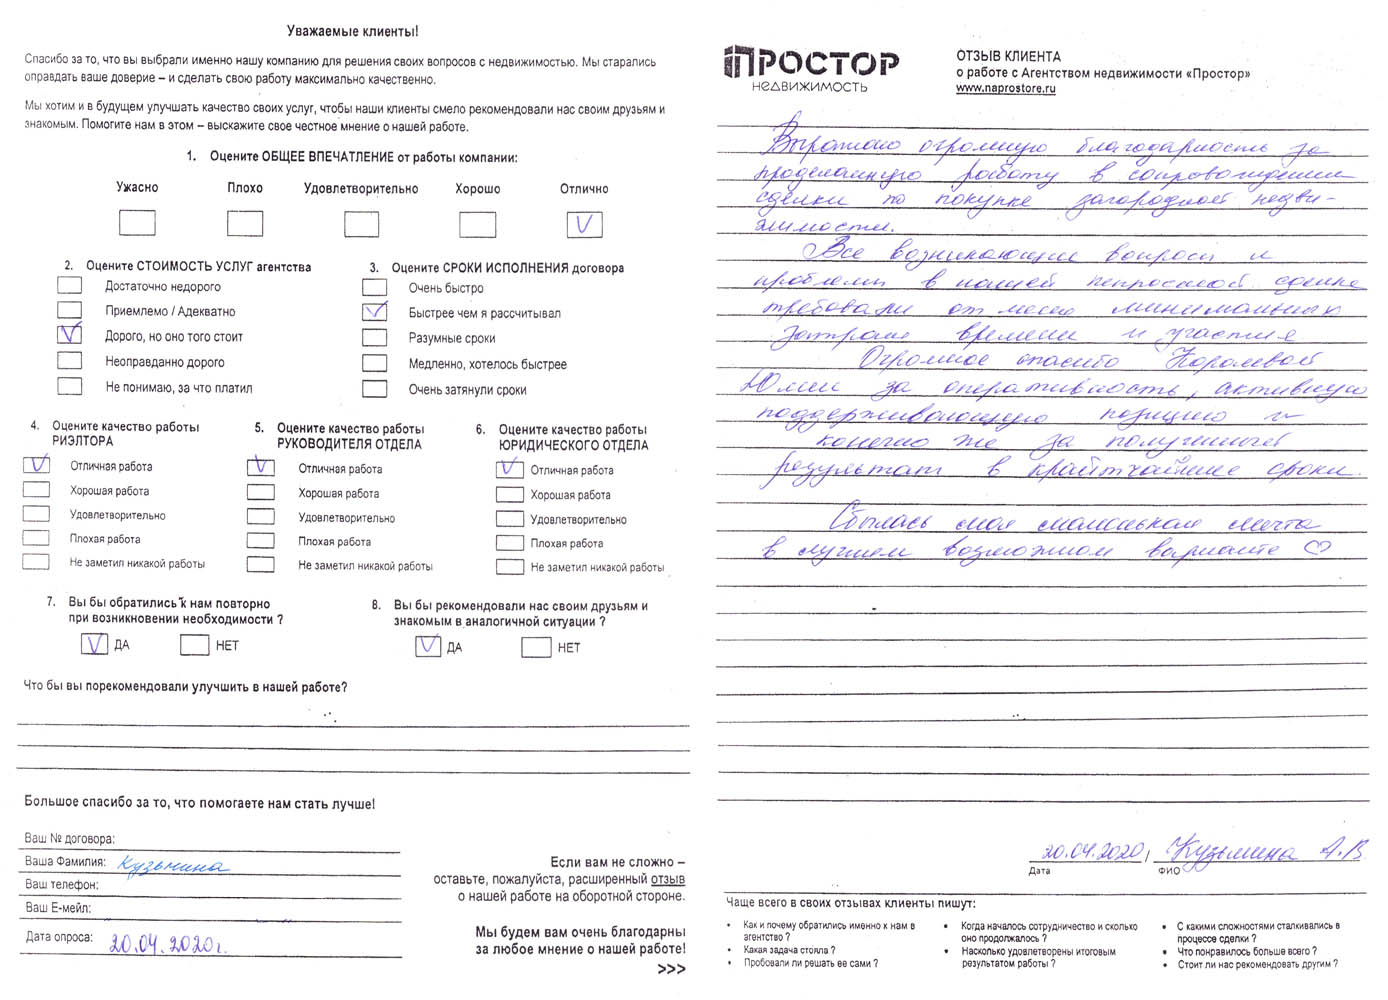 Уважаемые клиенты!
Спасибо за то, что вы выбрали именно нашу компанию для решения своих вопросов с недвижимостью. Мы старались
оправдать ваше доверие – и сделать свою работу максимально качественно.
Мы хотим и в будущем улучшать качество своих услуг, чтобы наши клиенты смело рекомендовали нас своим друзьям и
знакомым. Помогите нам в этом – выскажите свое честное мнение о нашей работе.
1. Оцените ОБЩЕЕ ВПЕЧАТЛЕНИЕ от работы компании:
Ужасно Плохо Удовлетворительно Хорошо Отлично
V
2. Оцените СТОИМОСТЬ УСЛУГ агентства
Достаточно недорого
Приемлемо / Адекватно
V Дорого, но оно того стоит
Неоправданно дорого
Не понимаю, за что платил
3. Оцените СРОКИ ИСПОЛНЕНИЯ договора
Очень быстро
V Быстрее чем я рассчитывал
Разумные сроки
Медленно, хотелось быстрее
Очень затянули сроки
4. Оцените качество работы
РИЭЛТОРА
V Отличная работа
Хорошая работа
Удовлетворительно
Плохая работа
Не заметил никакой работы
5. Оцените качество работы
РУКОВОДИТЕЛЯ ОТДЕЛА
V Отличная работа
Хорошая работа
Удовлетворительно
Плохая работа
Не заметил никакой работы
6. Оцените качество работы
ЮРИДИЧЕСКОГО ОТДЕЛА
V Отличная работа
Хорошая работа
Удовлетворительно
Плохая работа
Не заметил никакой работы
7. Вы бы обратились к нам повторно
при возникновении необходимости ?
V ДА НЕТ
8. Вы бы рекомендовали нас своим друзьям и
знакомым в аналогичной ситуации ?
V ДА НЕТ
Что бы вы порекомендовали улучшить в нашей работе?
Большое спасибо за то, что помогаете нам стать лучше!
Ваш № договора:
Ваша Фамилия: Кузьмина
Ваш телефон:
Ваш Е-мейл:
Дата опроса: 20.04.2020г.
Если вам не сложно –
оставьте, пожалуйста, расширенный отзыв
о нашей работе на оборотной стороне.
Мы будем вам очень благодарны
за любое мнение о нашей работе!
>>>
ПРОСТОР
НЕДВИЖИМОСТЬ
ОТЗЫВ КЛИЕНТА
о работе с Агентством недвижимости «Простор»
www.naprostore.ru
Выражаю огромную благодарность за
проделанную работу в сопровождении
сделки по покупке загородной недви-
жимости.
Все возникающие вопросы и
проблемы в нашей непростой сделке
требовали от меня минимальных
затрат времени и участия
Огромное спасибо Королевой
Юлии за оперативность, активную
поддерживающую позицию и
конечно же за полученный
результат в крайтчайшие сроки.
Сбылась моя маленькая мечта
в лучшем возможном варианте ♡
20.04.2020, Кузьмина А.В.
Дата ФИО
Чаще всего в своих отзывах клиенты пишут:
• Как и почему обратились именно к нам в
агентство ?
• Какая задача стояла ?
• Пробовали ли решать ее сами ?
• Когда началось сотрудничество и сколько
оно продолжалось ?
• Насколько удовлетворены итоговым
результатом работы ?
• С какими сложностями сталкивались в
процессе сделки ?
• Что понравилось больше всего ?
• Стоит ли нас рекомендовать другим ?